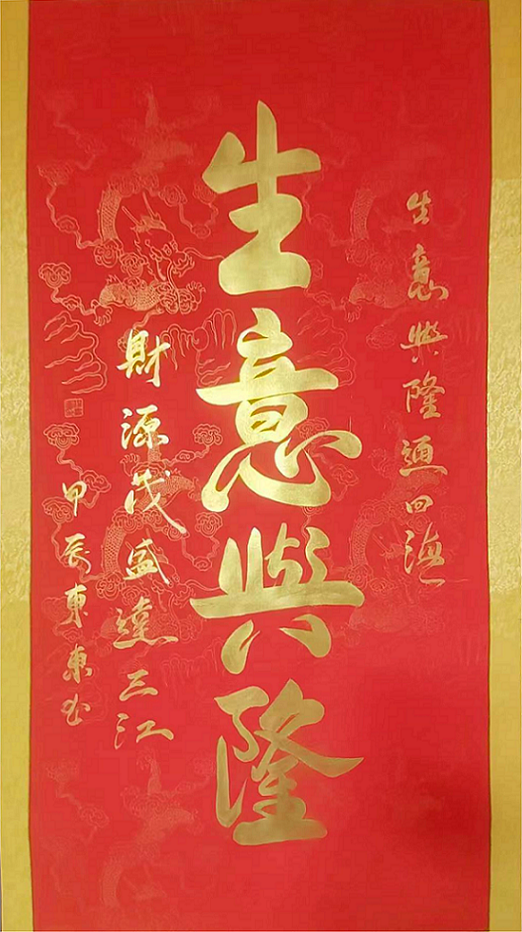 生意興隆通四海
生意興隆
財源茂盛達三江
甲辰東東书